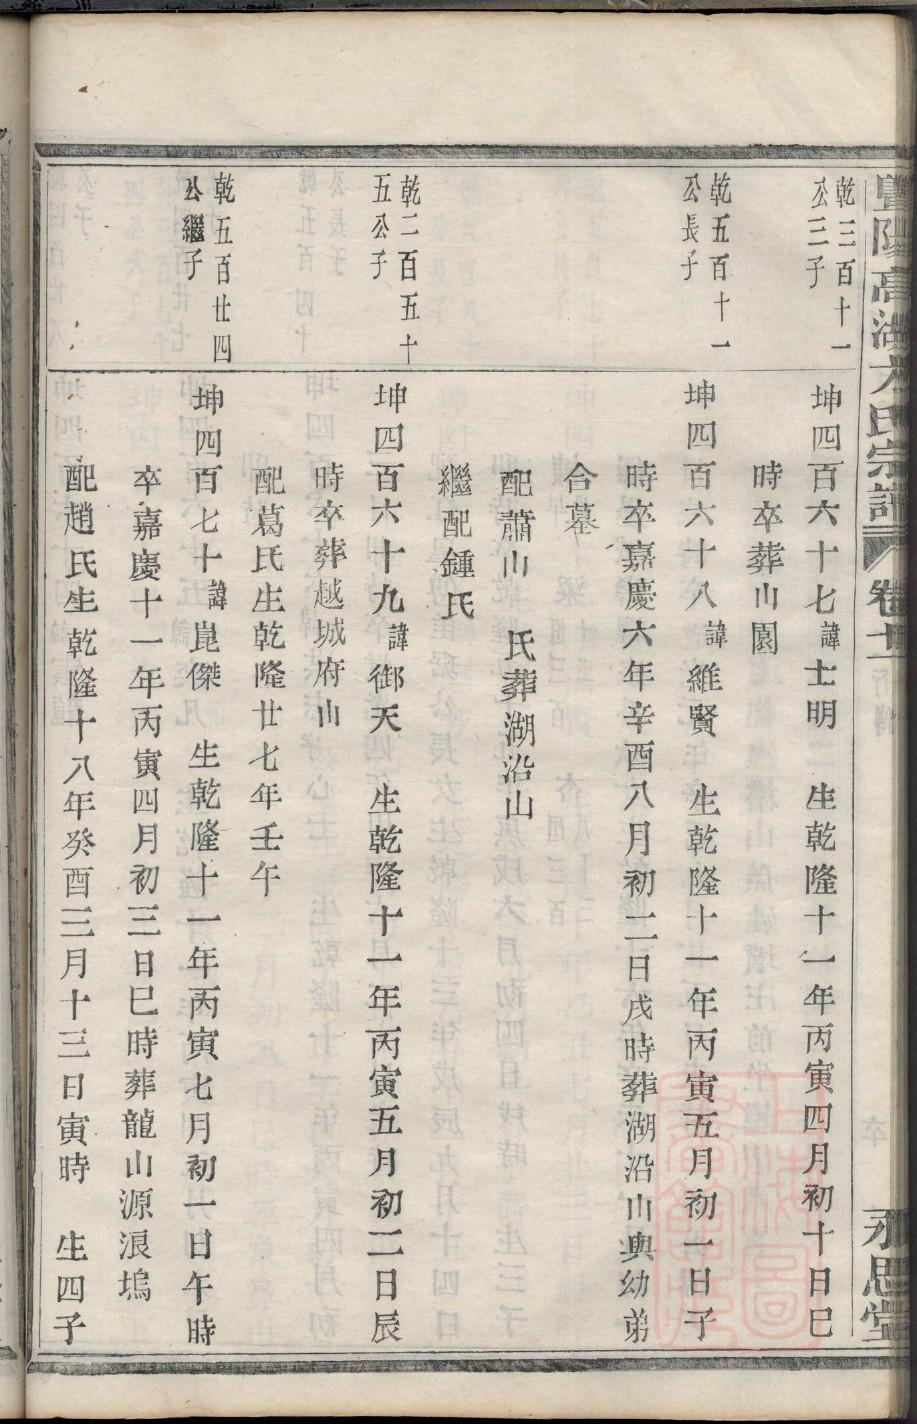 暨陽高湖方氏宗譜
卷十三 行傳
永思堂
乾三百十一
公三子
坤四百六十七諱士明 生乾隆十一年丙寅四月初十日巳
時卒葬山園
乾五百十一
公長子
坤四百六十八諱維賢 生乾隆十一年丙寅五月初一日子
時卒嘉慶六年辛酉八月初二日戌時葬湖沿山與幼弟
合墓
配蕭山 氏葬湖沿山
繼配鍾氏
乾二百五十
五公子
坤四百六十九諱御天 生乾隆十一年丙寅五月初二日辰
時卒葬越城府山
配葛氏生乾隆廿七年壬午
乾五百廿四
公繼子
坤四百七十諱崑傑 生乾隆十一年丙寅七月初一日午時
卒嘉慶十一年丙寅四月初三日巳時葬龍山源浪塢
配趙氏生乾隆十八年癸酉三月十三日寅時 生四子